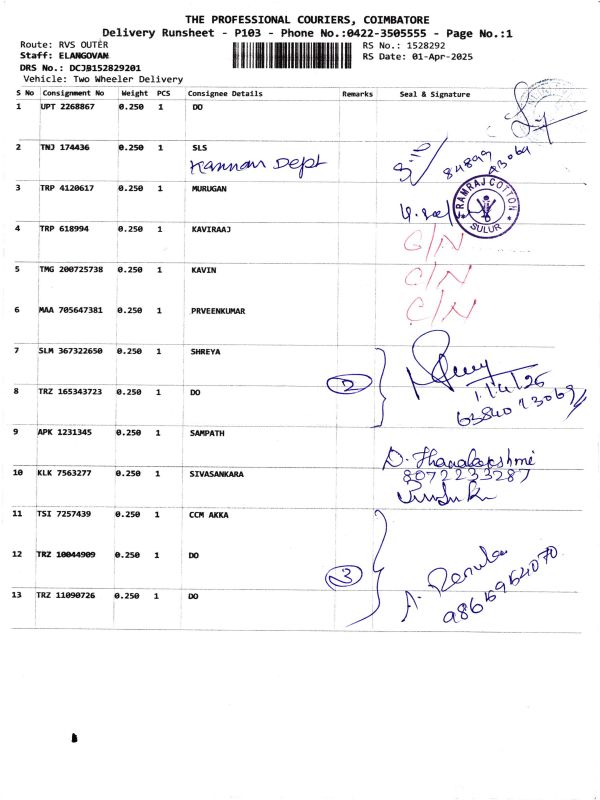 THE PROFESSIONAL COURIERS, COIMBATORE
Delivery Runsheet - P103 - Phone No.:0422-3505555 - Page No.:1
Route: RVS OUTER RS No.: 1528292
Staff: ELANGOVAN RS Date: 01-Apr-2025
DRS No.: DCJB152829201
Vehicle: Two Wheeler Delivery
S No Consignment No Weight PCS Consignee Details Remarks Seal & Signature
1 UPT 2268867 0.250 1 DO
2 TNJ 174436 0.250 1 SLS
Kannan Dept
3 TRP 4120617 0.250 1 MURUGAN
RAMRAJ COTTON
SULUR
4 TRP 618994 0.250 1 KAVIRAAJ C/N
5 TMG 200725738 0.250 1 KAVIN C/N
6 MAA 705647381 0.250 1 PRVEENKUMAR C/N
7 SLM 367322650 0.250 1 SHREYA
2
8 TRZ 165343723 0.250 1 DO 1/4/25
9 APK 1231345 0.250 1 SAMPATH
D. Thanalakshmi
10 KLK 7563277 0.250 1 SIVASANKARA 8072233287
11 TSI 7257439 0.250 1 CCM AKKA
12 TRZ 10044909 0.250 1 DO
3
13 TRZ 11090726 0.250 1 DO A. Renuka